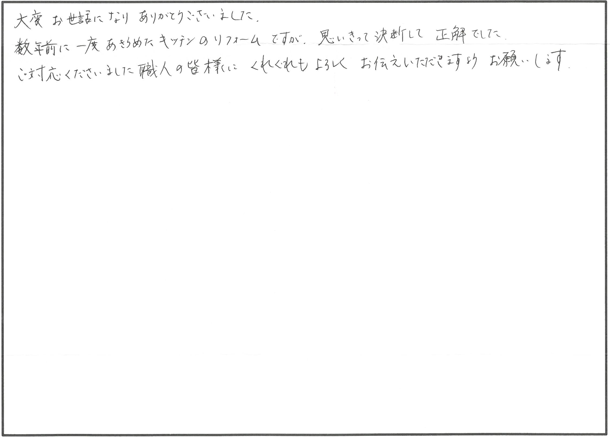 大変 お世話になり ありがとうございました。
数年前に一度 あきらめた キッチンのリフォーム ですが、思いきって決断して 正解でした。
ご対応くださいました 職人の皆様に くれぐれも よろしく お伝えいただきますよう お願いします。